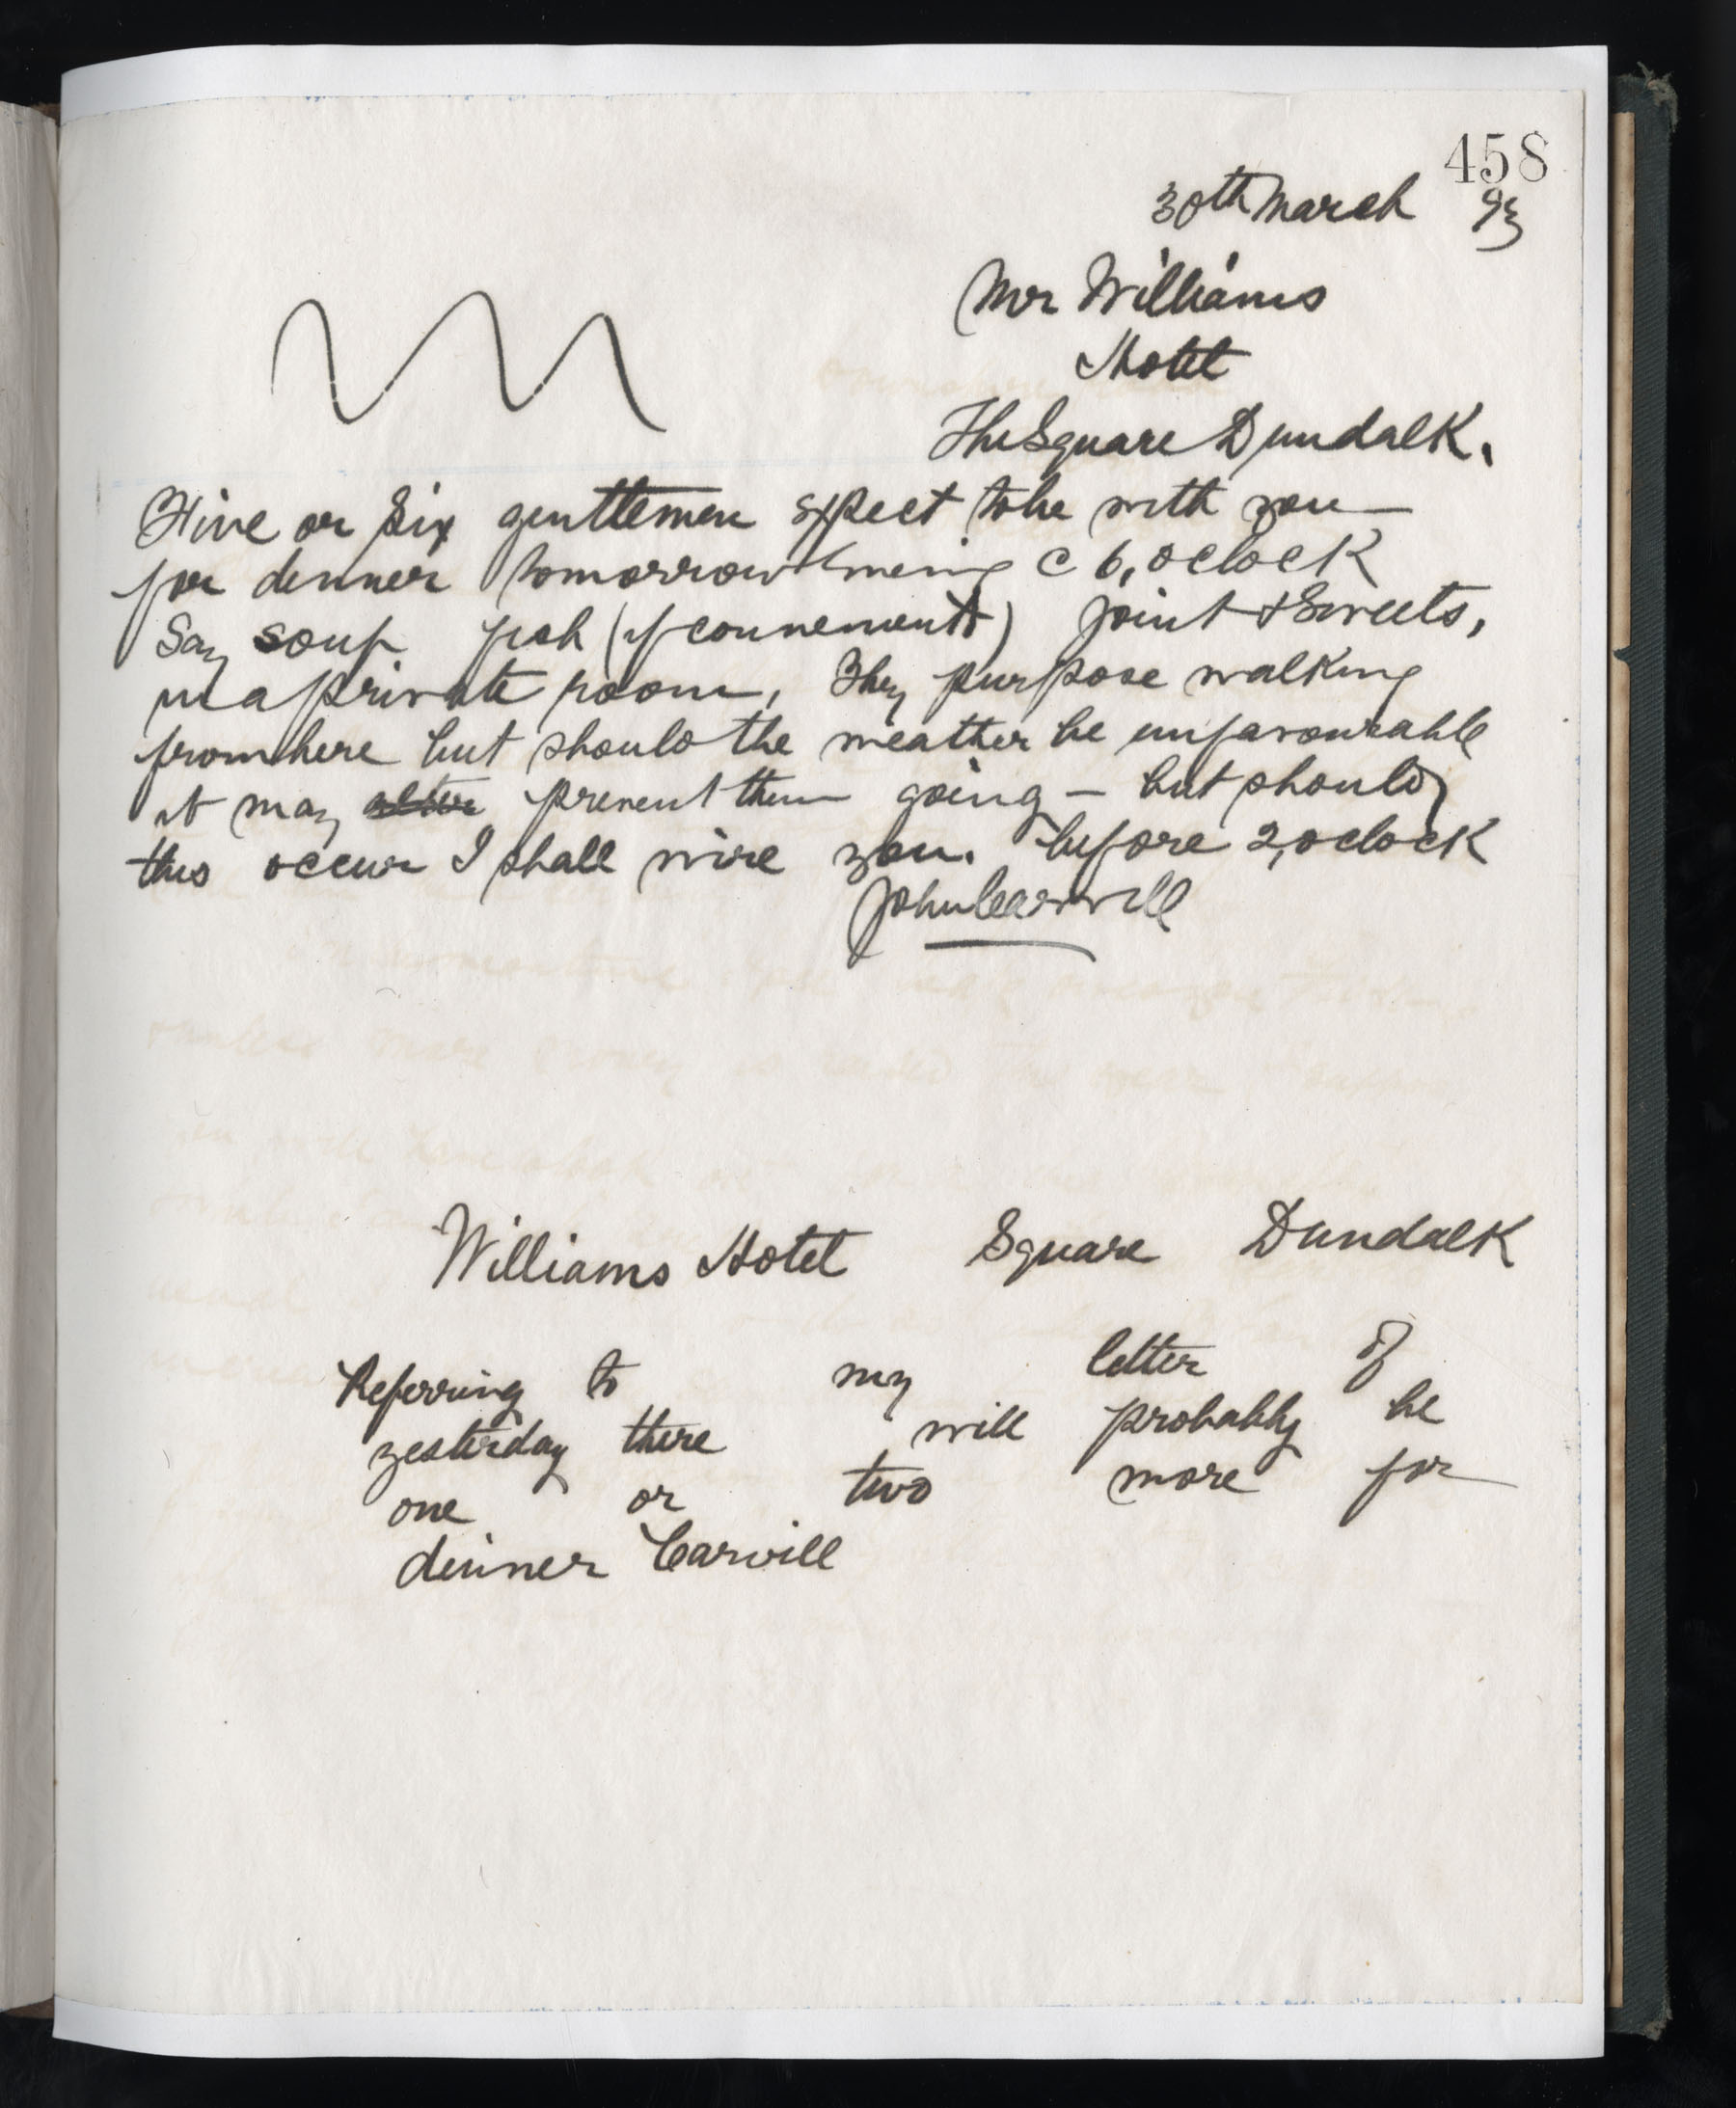 458
30th March 93
Mr Williams
Hotel
The Square Dundalk.
Five or Six gentlemen expect to be with you
for dinner tomorrow evening @ 6, oclock
Say soup fish (if convenient) joint & Sweets,
in a private room, They purpose walking
from here but should the weather be unfavourable
it may alter prevent them going – but should
this occur I shall wire you. before 2, oclock
John Carvill
Williams Hotel Square Dundalk
Referring to my letter of
yesterday there will probably be
one or two more for
dinner Carvill